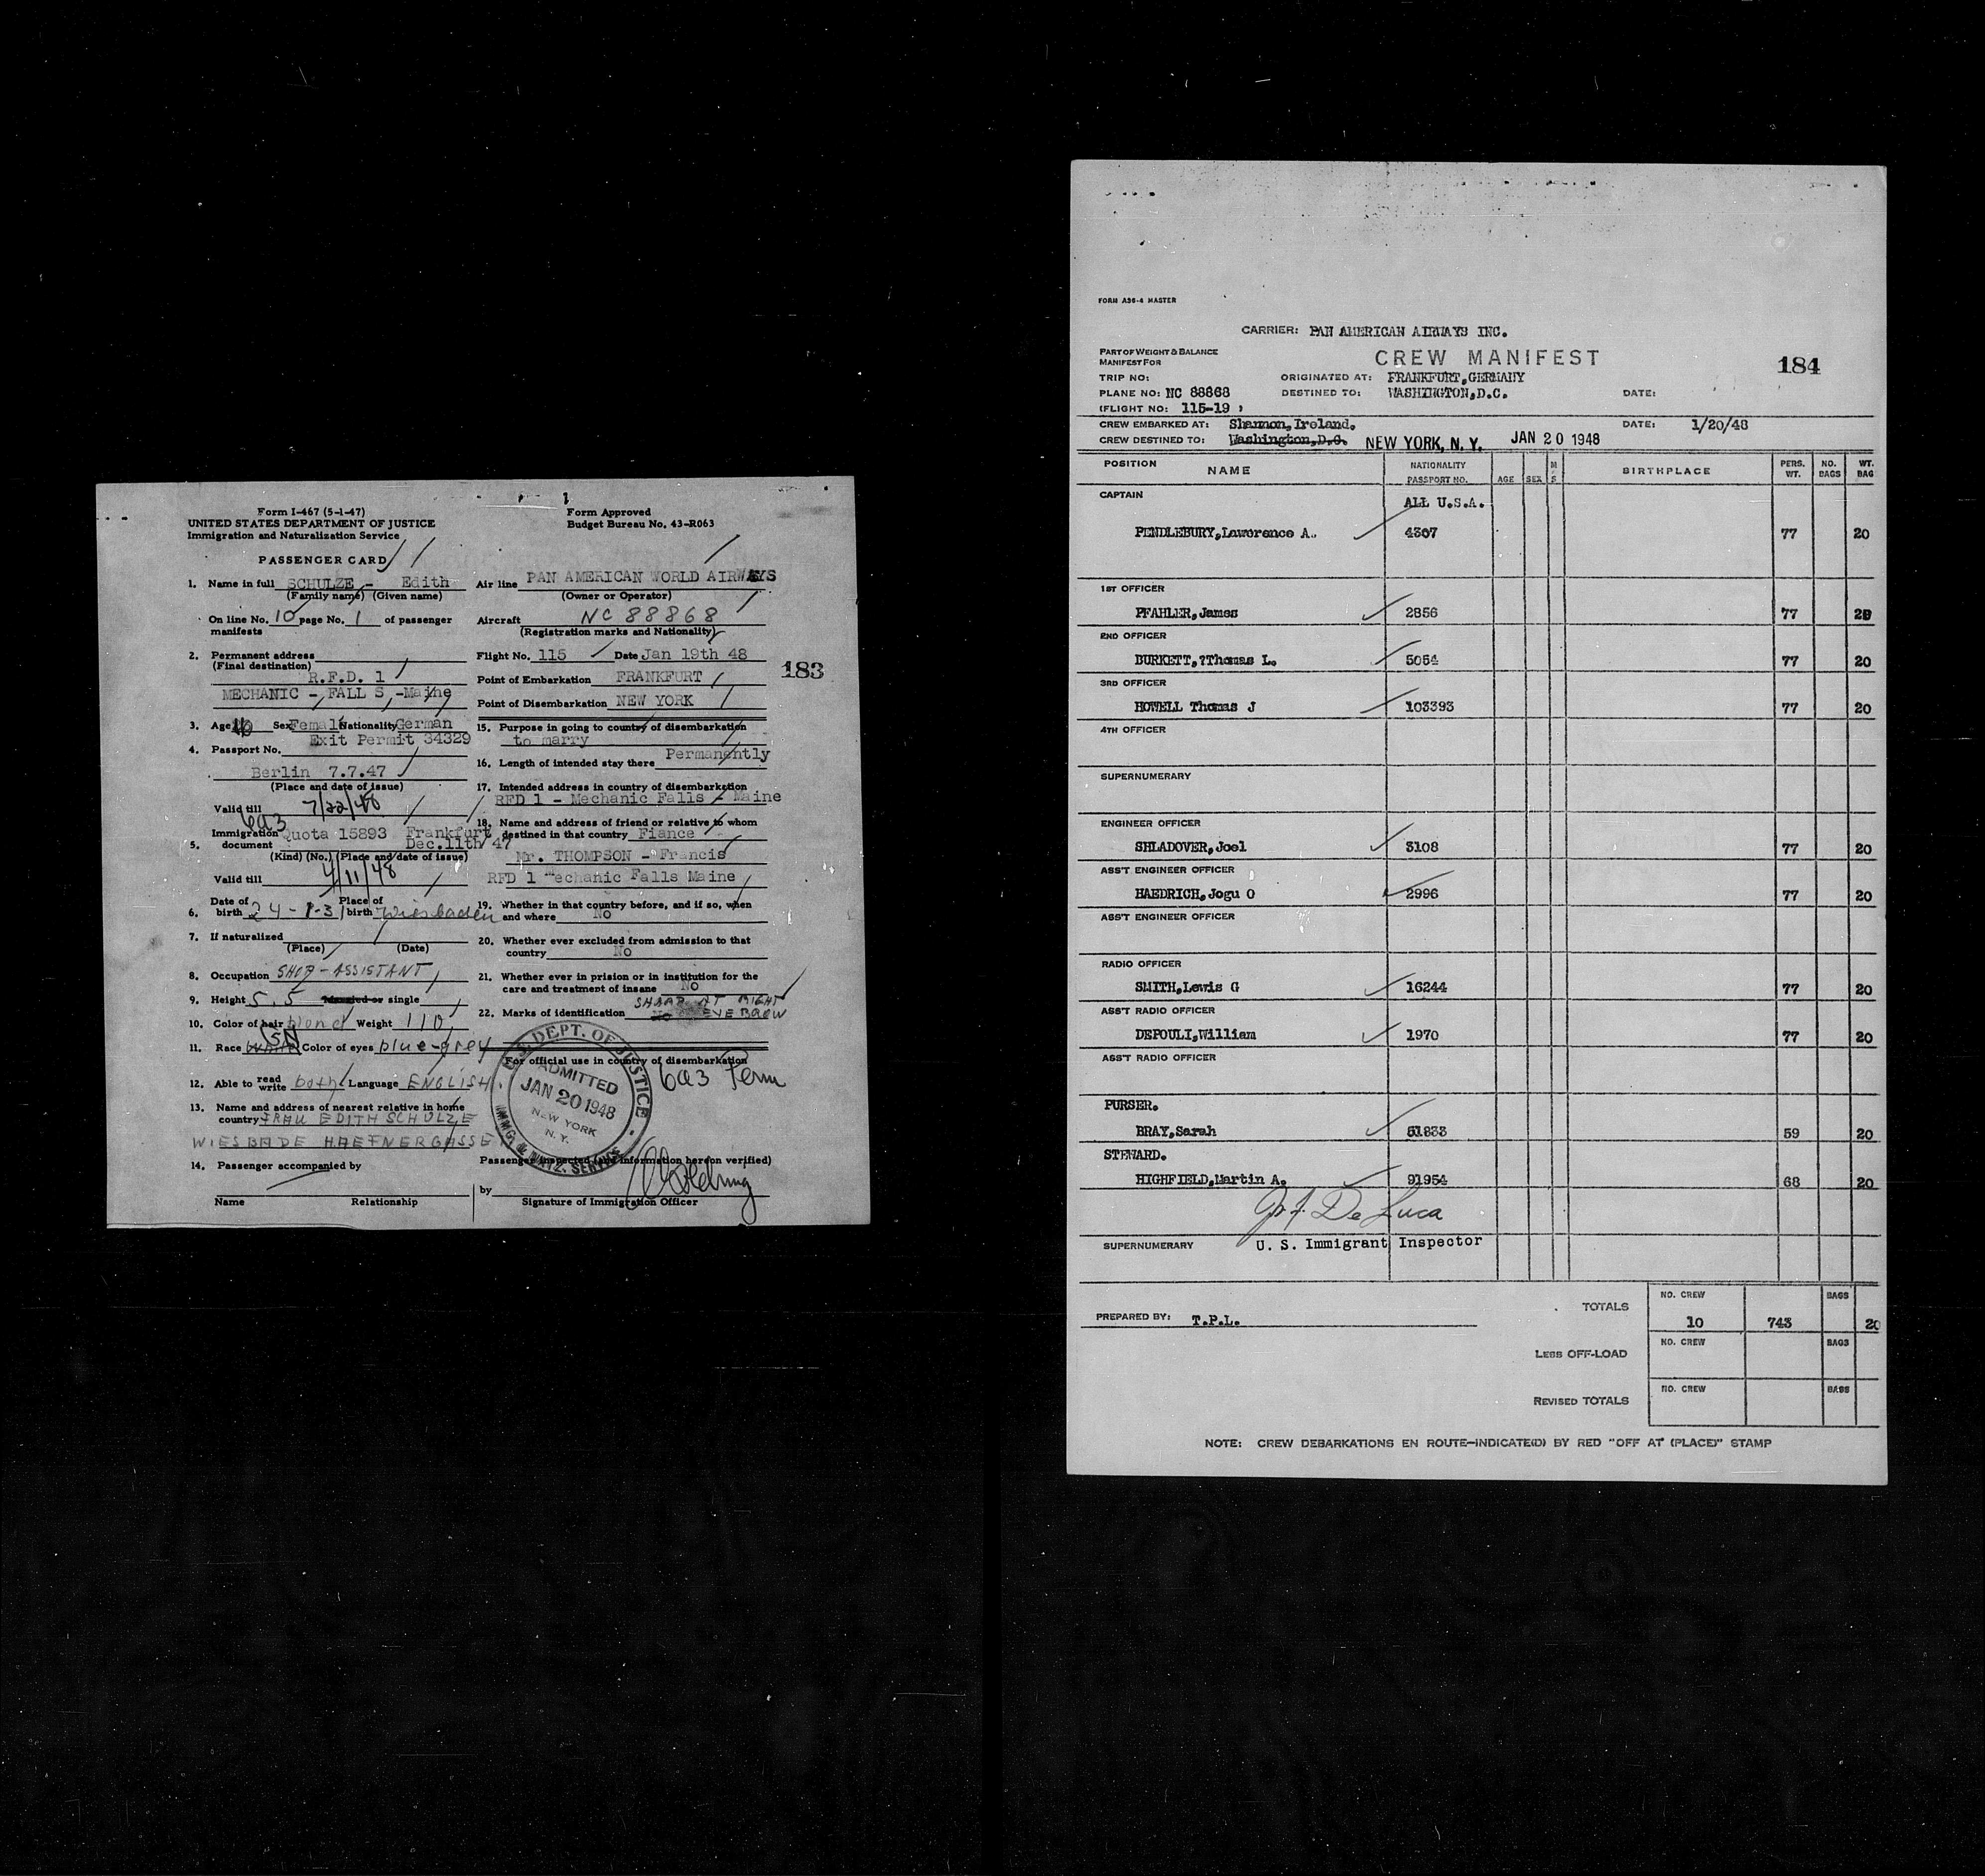 Form I-467 (5-1-47)
UNITED STATES DEPARTMENT OF JUSTICE
Immigration and Naturalization Service
Form Approved
Budget Bureau No. 43-R063
PASSENGER CARD
183
1. Name in full SCHULZE - Edith
(Family name) (Given name)
On line No. 10 page No. 1 of passenger
manifests
2. Permanent address
(Final destination)
R.F.D. 1
MECHANIC - FALL S, -Maine
3. Age Sex Female Nationality German
Exit Permit 34329
4. Passport No.
Berlin 7.7.47
(Place and date of issue)
Valid till 7/22/48
6a3
Immigration Quota 15893 Frankfurt
5. document Dec.11th 47
(Kind) (No.) (Place and date of issue)
Valid till 4/11/48
6. Date of birth 24-1-31 Place of birth Wiesbaden
7. If naturalized
(Place) (Date)
8. Occupation SHOP-ASSISTANT
9. Height 5.5 Married or single
10. Color of hair blond Weight 110
11. Race White Color of eyes blue-grey
12. Able to read write both Language ENGLISH
13. Name and address of nearest relative in home
country FRAU EDITH SCHULZE
WIESBADE HAEFNERGASSE
14. Passenger accompanied by
Name Relationship
Air line PAN AMERICAN WORLD AIRWAYS
(Owner or Operator)
Aircraft NC 88868
(Registration marks and Nationality)
Flight No. 115 Date Jan 19th 48
Point of Embarkation FRANKFURT
Point of Disembarkation NEW YORK
15. Purpose in going to country of disembarkation
to marry
16. Length of intended stay there Permanently
17. Intended address in country of disembarkation
RFD 1 - Mechanic Falls - Maine
18. Name and address of friend or relative to whom
destined in that country Fiance
Mr. THOMPSON - Francis
RFD 1 echanic Falls Maine
19. Whether in that country before, and if so, when
and where No
20. Whether ever excluded from admission to that
country No
21. Whether ever in prision or in institution for the
care and treatment of insane No
22. Marks of identification AT RIGHT
EYEBROW
For official use in country of disembarkation
6a3 Perm
U.S. DEPT. OF JUSTICE
ADMITTED
JAN 20 1948
NEW YORK
N. Y.
IMMIG. & NATZ. SERVICE
Passenger inspected (and information hereon verified)
by
Signature of Immigration Officer
FORM A36-4 MASTER
CARRIER: PAN AMERICAN AIRWAYS INC.
PART OF WEIGHT & BALANCE
MANIFEST FOR
CREW MANIFEST
184
TRIP NO: ORIGINATED AT: FRANKFURT,GERMANY
PLANE NO: NC 88868 DESTINED TO: WASHINGTON,D.C. DATE:
(FLIGHT NO: 115-19 )
CREW EMBARKED AT: Shannon, Ireland. DATE: 1/20/48
CREW DESTINED TO: Washington,D.C. NEW YORK, N. Y. JAN 20 1948
POSITION NAME NATIONALITY PASSPORT NO. AGE SEX M S BIRTHPLACE PERS. WT. NO. BAGS WT. BAG
CAPTAIN ALL U.S.A.
PENDLEBURY,Lawerence A. 4307 77 20
1ST OFFICER
PFAHLER,James 2856 77 20
2ND OFFICER
BURKETT,?Thomas L. 5054 77 20
3RD OFFICER
HOWELL Thomas J 103393 77 20
4TH OFFICER
SUPERNUMERARY
ENGINEER OFFICER
SHLADOVER,Joel 3108 77 20
ASS'T ENGINEER OFFICER
HAEDRICH,Jogu O 2996 77 20
ASS'T ENGINEER OFFICER
RADIO OFFICER
SMITH,Lewis G 16244 77 20
ASS'T RADIO OFFICER
DEPOULI,William 1970 77 20
ASS'T RADIO OFFICER
PURSER.
BRAY,Sarah 51833 59 20
STEWARD.
HIGHFIELD,Martin A. 91954 68 20
De Luca
SUPERNUMERARY U. S. Immigrant Inspector
PREPARED BY: T.P.L.
TOTALS NO. CREW 10 743 BAGS 20
LESS OFF-LOAD NO. CREW BAGS
REVISED TOTALS NO. CREW BAGS
NOTE: CREW DEBARKATIONS EN ROUTE—INDICATE(D) BY RED "OFF AT (PLACE)" STAMP